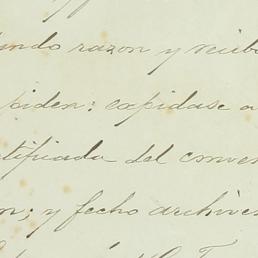 ando razon y recib
piden: expidase a
rtificada del conven
on; y fecho archives